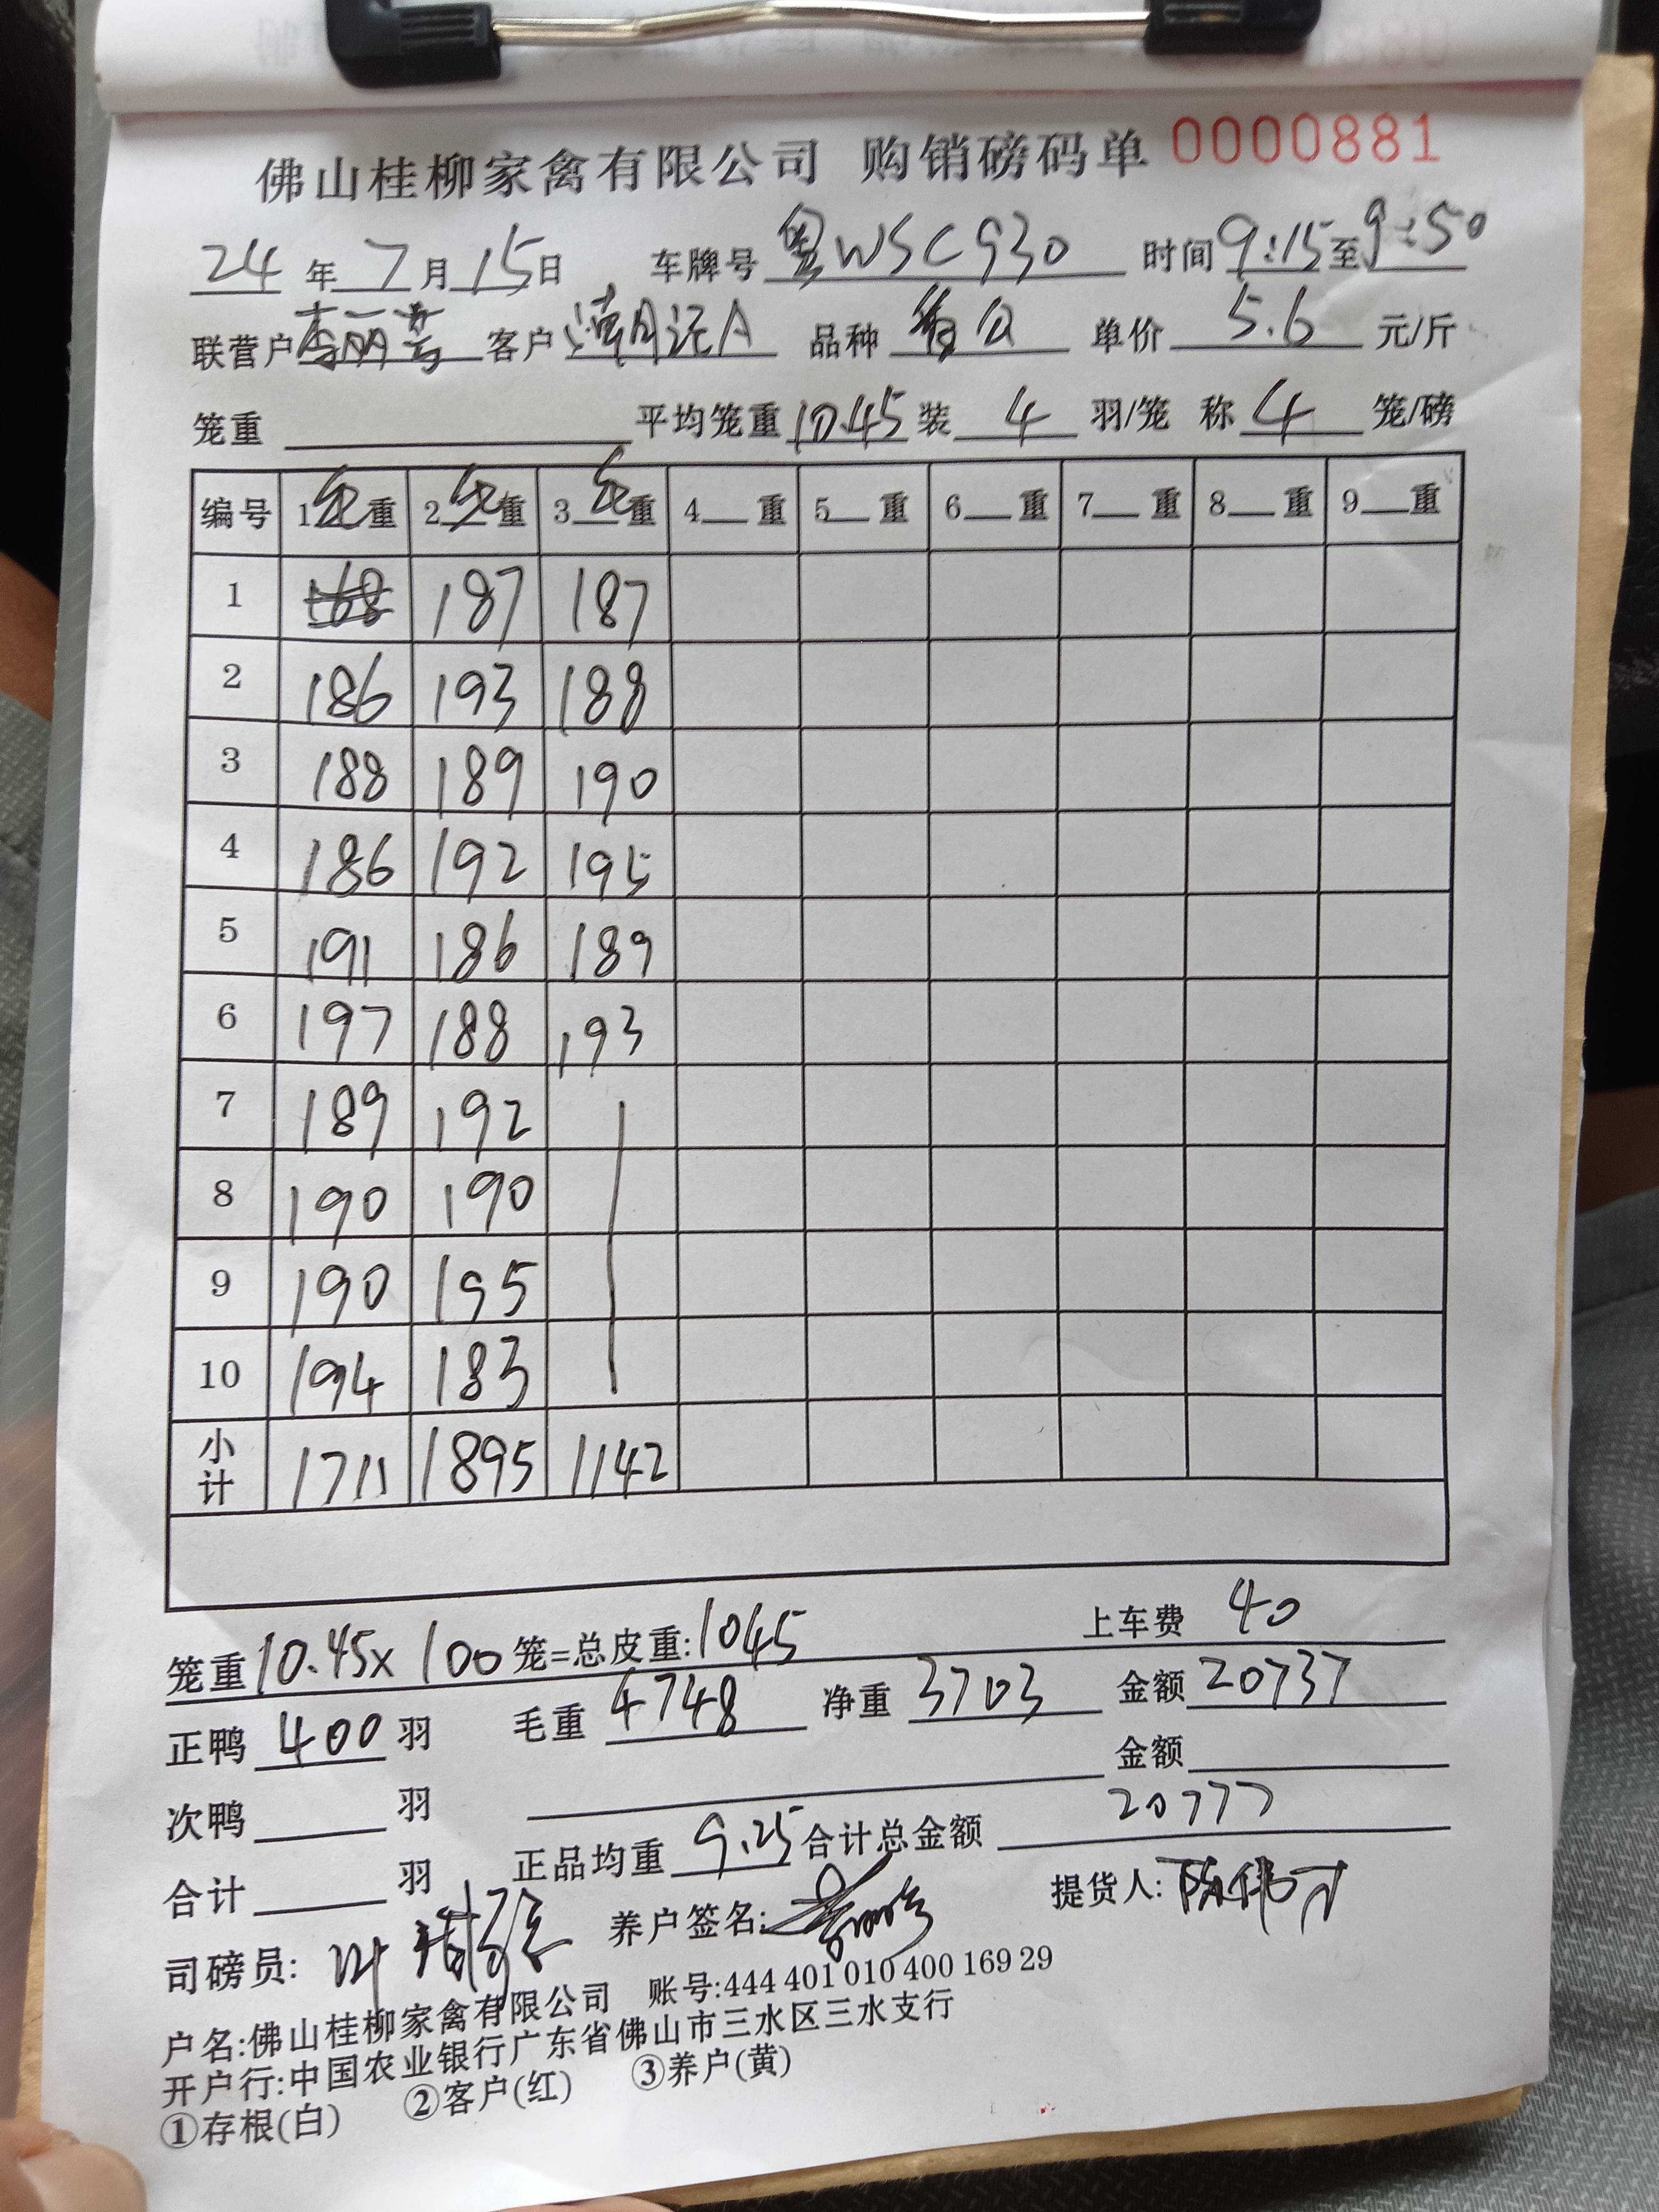 佛山桂柳家禽有限公司 购销磅码单 0000881
24 年 7 月 15 日 车牌号 粤WSC930 时间 9:15 至 9:50
联营户 李丽芳 客户 A 品种 公 单价 5.6 元/斤
笼重 平均笼重 10.45 装 4 羽/笼 称 4 笼/磅
编号 1 重 2 重 3 重 4 重 5 重 6 重 7 重 8 重 9 重
1 168 187 187
2 186 193 188
3 188 189 190
4 186 192 195
5 191 186 189
6 197 188 193
7 189 192
8 190 190
9 190 195
10 194 183
小计 1711 1895 1142
笼重 10.45x 100 笼=总皮重: 1045 上车费 40
正鸭 400 羽 毛重 4748 净重 3703 金额 20737
次鸭 羽 金额
合计 羽 正品均重 9.25 合计总金额 20777
司磅员: 叶 养户签名: 提货人: 陈伟才
户名:佛山桂柳家禽有限公司 账号:444 401 010 400 169 29
开户行:中国农业银行广东省佛山市三水区三水支行
①存根(白) ②客户(红) ③养户(黄)